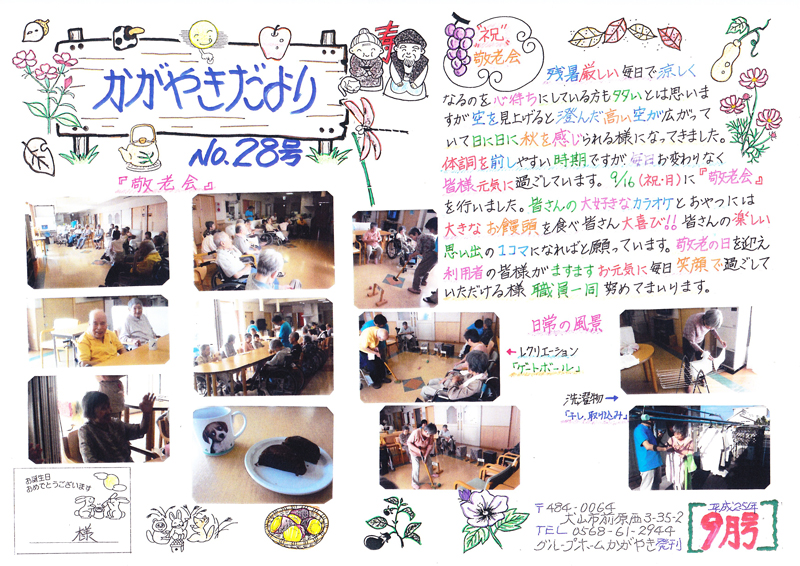 かがやきだより
No.28号
寿
『敬老会』
"祝"
敬老会
残暑厳しい毎日で涼しく
なるのを心待ちにしている方も多いとは思いま
すが空を見上げると澄んだ高い空が広がって
いて日に日に秋を感じられる様になってきました。
体調を崩しやすい時期ですが毎日お変わりなく
皆様元気に過ごしています。9/16(祝・月)に『敬老会』
を行いました。皆さんの大好きなカラオケとおやつには
大きなお饅頭を食べ皆さん大喜び!!皆さんの楽しい
思い出の1コマになればと願っています。敬老の日を迎え
利用者の皆様がますますお元気に毎日笑顔で過ごして
いただける様職員一同努めてまいります。
日常の風景
←レクリエーション
『ゲートボール』
洗濯物→
『干し、取り込み』
お誕生日
おめでとうございます
様
〒484-0064
犬山市前原西3-35-2
TEL 0568-61-2944
グループホームかがやき発刊
平成25年
9月号